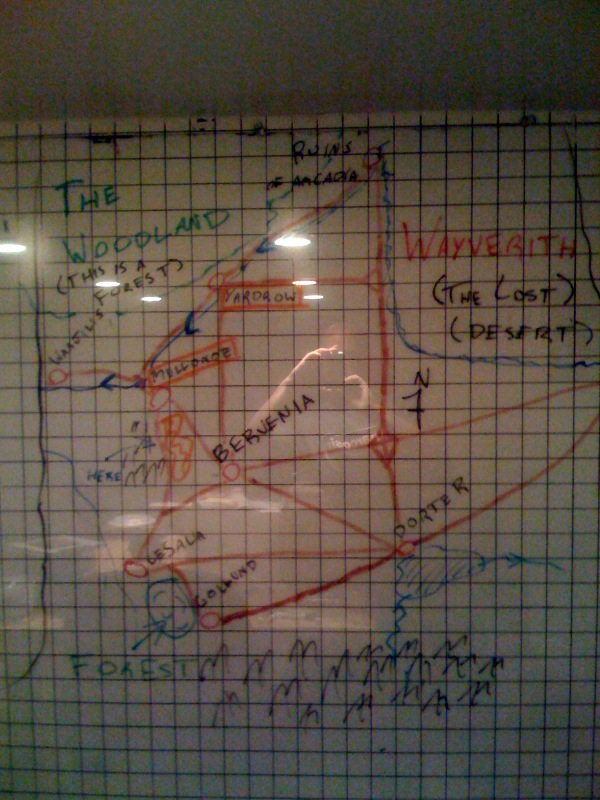 RUINS
OF ARCADIA
THE
WOODLAND
(THIS IS A
FOREST)
WAYVERITH
(THE LOST)
(DESERT)
YARDROW
N
BERVENIA
HERE
DORTER
LESALA
GOLLUND
FOREST